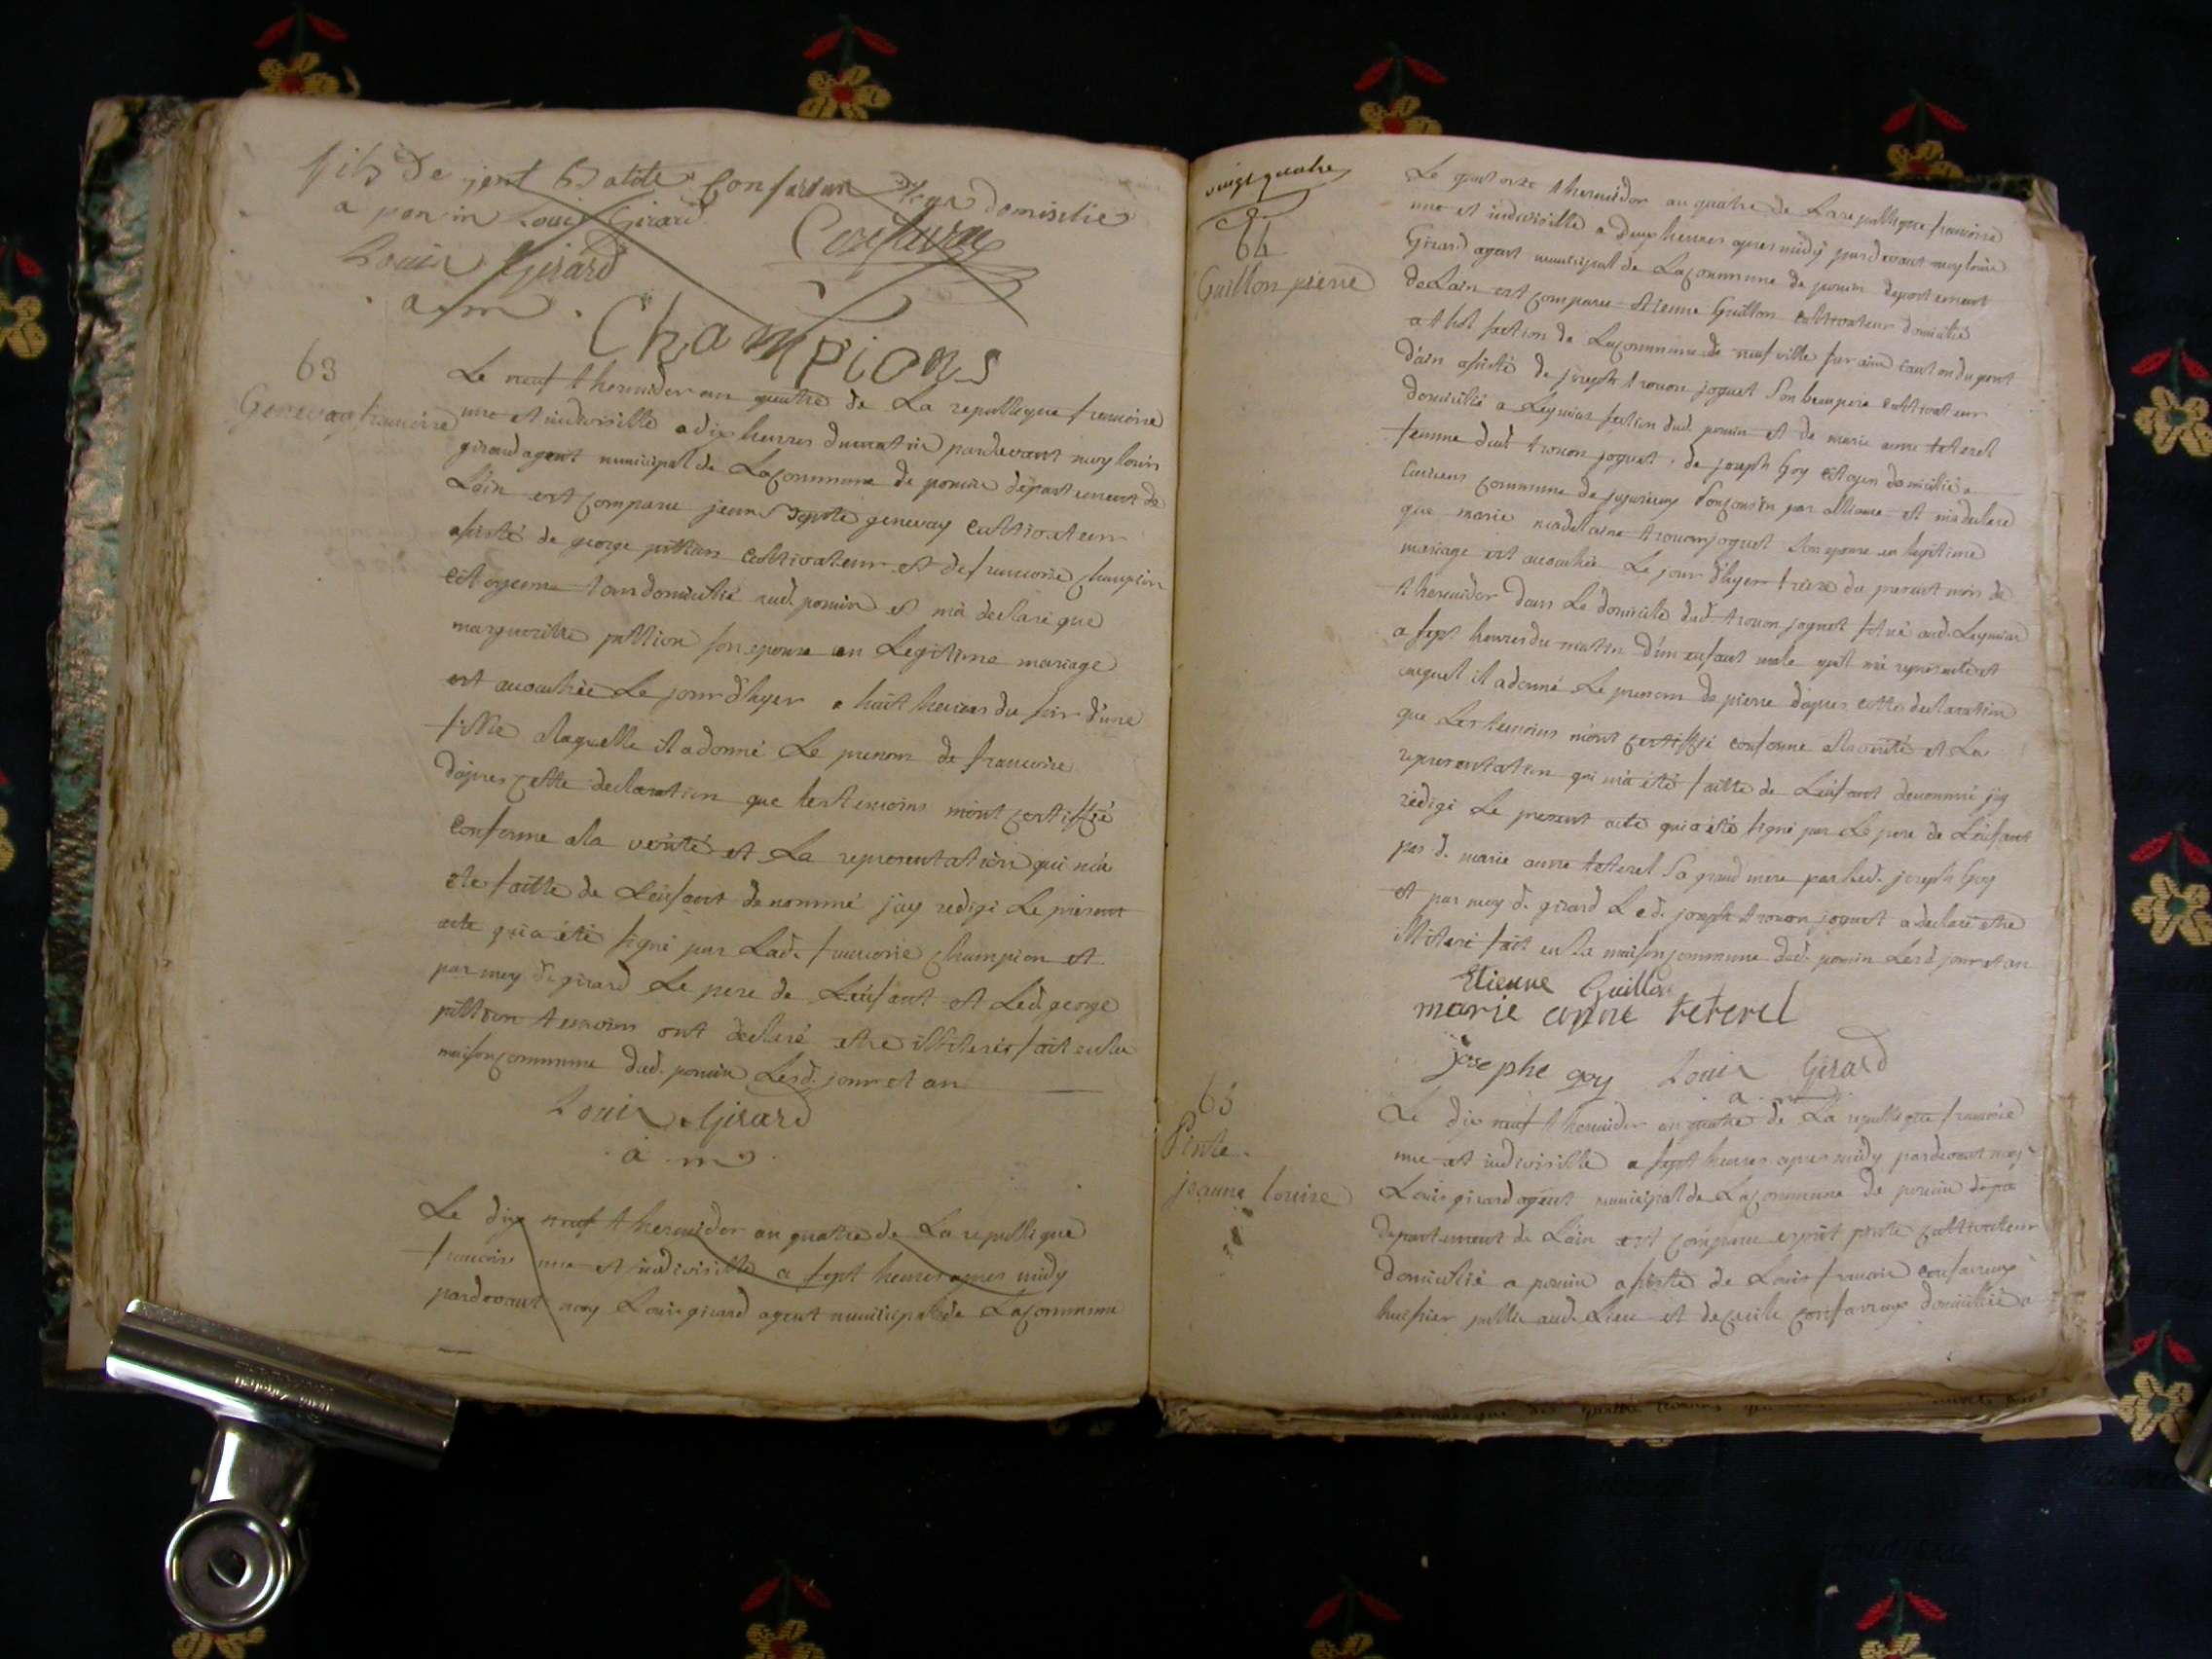 fils de jent Batite Confavrun domisilie
a ponsin Louis Girard
Louis Girard
a. m.
Champions
63
Genevay francoise
Le neuf thermidor an quatre de La republique francoise
une et indivisible a dix heures dumatin pardevant moy louis
girard agent municipal de Lacommune de poncin departement de
Lain est comparu jean genevay Cultivateur
asisté de george Cultivateur et de francoise champion
citoyenne tous domicilié aud. poncin et ma declaré que
margueritte pittion son epouse en Legitime mariage
est accouchée Le jour d'hyer a huit heures du soir d'une
fille alaquelle il a donné Le prenom de francoise
dapres cette declaration que les temoins mont certiffié
conforme ala verité et La representation qui ma
ete faitte de Lenfant denommé jay redigé Le present
acte qui a été signé par Lad. francoise champion et
par moy d. girard Le pere de Lenfant et Led. george
pittion temoins ont declaré etre illiterés fait en la
maison commune dud. poncin Lesd. jour et an
Louis Girard
a. m.
Le dix neuf thermidor an quatre de La republique
francoise une et indivisible a sept heures apres midy
pardevant moy Louis girard agent municipal de Lacommune
vingt quatre
64
Guillon pierre
Le quatorze thermidor an quatre de La republique francoise
une et indivisible a deux heures apres midy pardevant moy louis
Girard agent municipal de Lacommune de poncin departement
de Lain est comparu etienne Guillon cultivateur domicilié
a thol section de Lacommune de neufville sur ain canton du pont
d'ain asisté de joseph trouon joguet son beaupere cultivateur
domicilié a Leymiat section dud. poncin et de marie anne teterel
femme dud trouon joguet, de joseph Goy citoyen domicilié a
commune de jujurieux son cousin par alliance et ma declaré
que marie madelaine trouon joguet son epouse en legitime
mariage est accouchée Le jour d'hyer treize du present mois de
thermidor dans Le domicile dud. trouon joguet situé aud. Leymiat
a sept heures du matin d'un enfant male qu'il ma representé et
auquel il a donné Le prenom de pierre dapres cette declaration
que Les temoins mont certiffié conforme ala verité et La
representation qui ma été faitte de Lenfant denommé jay
redigé Le present acte qui a été signé par Le pere de Lenfant
par d. marie anne teterel sa grand mere par led. joseph Goy
et par moy d. girard Led. joseph trouon joguet a declaré etre
illiteré fait en La maison commune dud. poncin Lesd. jour et an
Etienne Guillon
marie anne teterel
josephe goy Louis Girard
a. m.
65
Pinte
jeanne louise
Le dix neuf thermidor an quatre de La republique francoise
une et indivisible a sept heures apres midy pardevant moy
Louis girard agent municipal de Lacommune de poncin depa
departement de Lain est comparu esprit pinte cultivateur
domicilié a poncin asisté de Louis francois confavreux
huissier public aud. Lieu et de cecile confavreux domicilié a